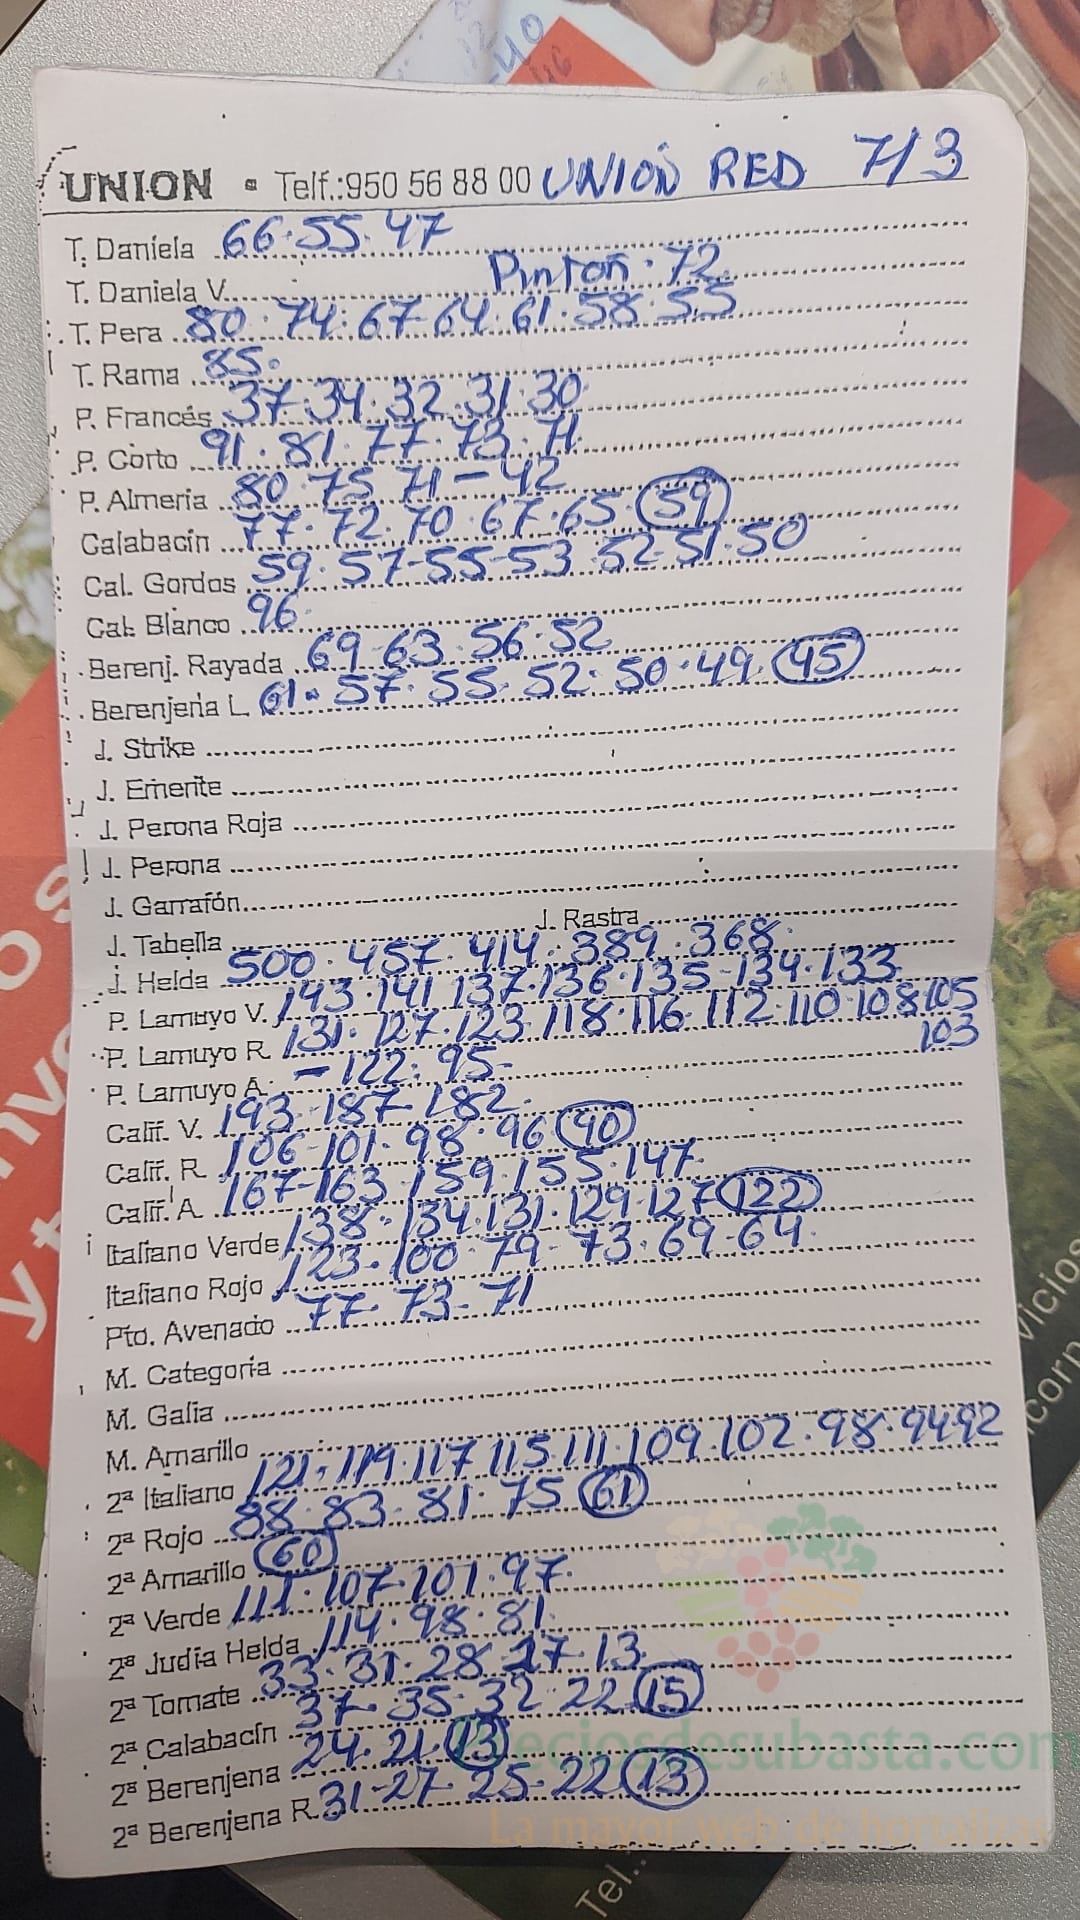 UNION • Telf.:950 56 88 00 UNIÓN RED 7/3
T. Daniela 66.55.47
T. Daniela V. Pintón.72
T. Pera 80.74.67.64.61.58.55
T. Rama 85.
P. Francés 37.34.32.31.30
P. Corto 91.81.77.73.71
P. Almeria 80.75 71-42
Calabacín 77.72.70.67.65 59
Cal. Gordos 59.57-55-53 52-51.50
Cal. Blanco 96
Berenj. Rayada 69-63.56.52
Berenjena L. 61.57.55.52.50.49 45
J. Strike
J. Emerite
J. Perona Roja
J. Perona
J. Garrafón
J. Tabella J. Rastra
J. Helda 500.457.414.389.368.
P. Lamuyo V. 143.141 137.136.135-134.133
P. Lamuyo R. 131.127.123.118.116.112.110.108 105
103
P. Lamuyo A. -122.95-
Calif. V. 193-187-182
Calif. R 106-101.98.96 90
Calif. A 167-163.159.155.147
Italiano Verde 138.134.131.129.127 122
Italiano Rojo 123.100.79-73.69-64
Pto. Avenado 77.73-71
M. Categoria
M. Galia
M. Amarillo
2ª Italiano 121.119.117 115.111.109.102.98.94 92
2ª Rojo 88.83.81.75 61
2ª Amarillo 60
2ª Verde 111.107.101.97.
2ª Judia Helda 114.98.81
2ª Tomate 33.31.28 27.13
2ª Calabacín 37.35-32.22 15
2ª Berenjena 24.21 13
2ª Berenjena R. 31-27.25.22 13
Preciosdesubasta.com
La mayor web de hortalizas
Tel.